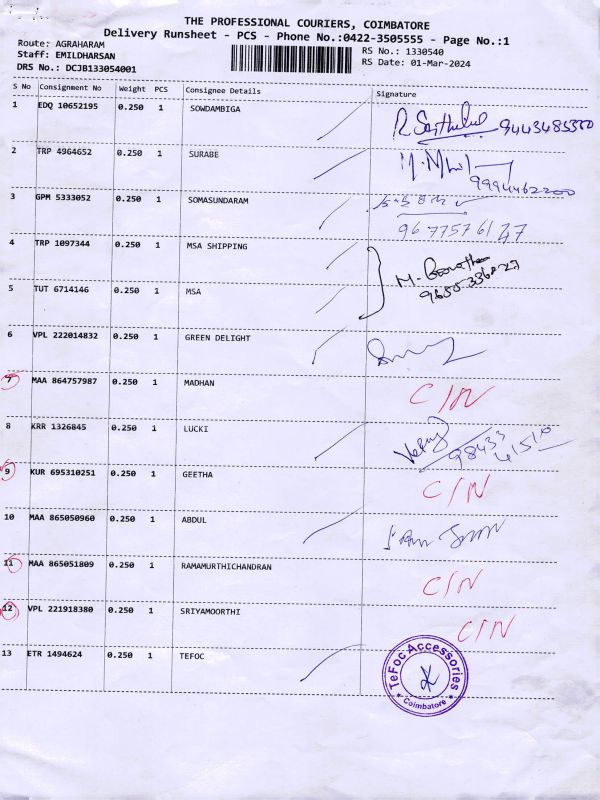 THE PROFESSIONAL COURIERS, COIMBATORE
Delivery Runsheet - PCS - Phone No.:0422-3505555 - Page No.:1
Route: AGRAHARAM
RS No.: 1330540
Staff: EMILDHARSAN
RS Date: 01-Mar-2024
DRS No.: DCJB133054001
S No Consignment No Weight PCS Consignee Details Signature
1 EDQ 10652195 0.250 1 SOWDAMBIGA
9443485350
2 TRP 4964652 0.250 1 SURABE
9994462200
3 GPM 5333052 0.250 1 SOMASUNDARAM
9677576127
4 TRP 1097344 0.250 1 MSA SHIPPING
5 TUT 6714146 0.250 1 MSA
6 VPL 222014832 0.250 1 GREEN DELIGHT
7 MAA 864757987 0.250 1 MADHAN C/N
8 KRR 1326845 0.250 1 LUCKI
98433 41510
9 KUR 695310251 0.250 1 GEETHA C/N
10 MAA 865050960 0.250 1 ABDUL
11 MAA 865051809 0.250 1 RAMAMURTHICHANDRAN C/N
12 VPL 221918380 0.250 1 SRIYAMOORTHI C/N
13 ETR 1494624 0.250 1 TEFOC
TeFoc Accessories
* Coimbatore *